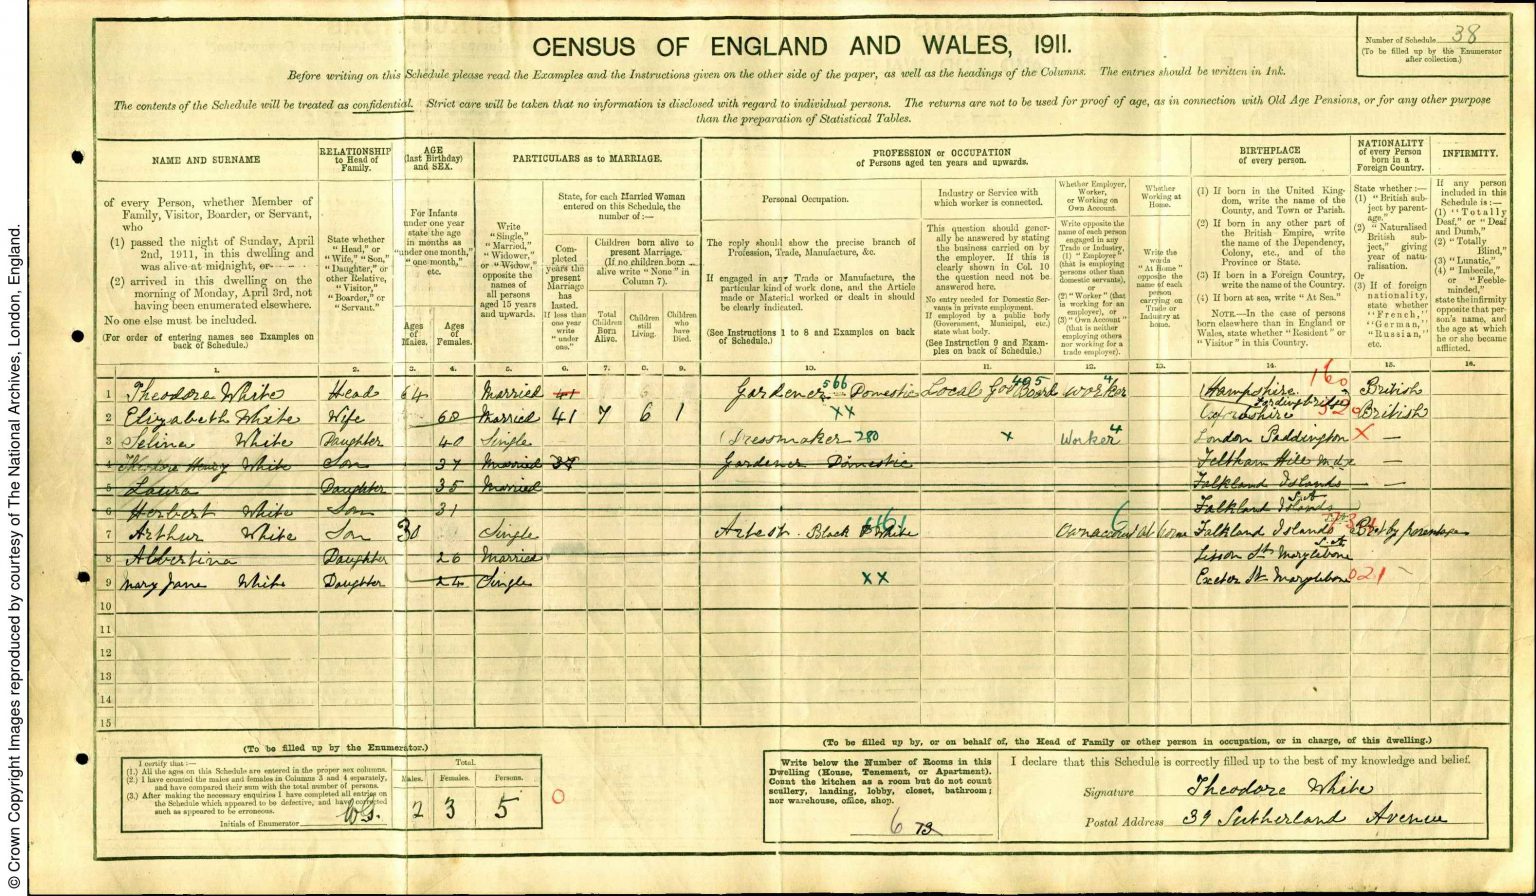 CENSUS OF ENGLAND AND WALES, 1911.
Number of Schedule 38
(To be filled up by the Enumerator after collection.)
Before writing on this Schedule please read the Examples and the Instructions given on the other side of the paper, as well as the headings of the Columns. The entries should be written in Ink.
The contents of the Schedule will be treated as confidential. Strict care will be taken that no information is disclosed with regard to individual persons. The returns are not to be used for proof of age, as in connection with Old Age Pensions, or for any other purpose
than the preparation of Statistical Tables.
NAME AND SURNAME
RELATIONSHIP to Head of Family.
AGE (last Birthday) and SEX.
PARTICULARS as to MARRIAGE.
PROFESSION or OCCUPATION
of Persons aged ten years and upwards.
BIRTHPLACE
of every person.
NATIONALITY of every Person born in a Foreign Country.
INFIRMITY.
of every Person, whether Member of Family, Visitor, Boarder, or Servant, who
(1) passed the night of Sunday, April 2nd, 1911, in this dwelling and was alive at midnight, or
(2) arrived in this dwelling on the morning of Monday, April 3rd, not having been enumerated elsewhere.
No one else must be included.
(For order of entering names see Examples on back of Schedule.)
State whether "Head," or "Wife," "Son," "Daughter," or other Relative, "Visitor," "Boarder," or "Servant."
For Infants under one year state the age in months as "under one month," "one month," etc.
Ages of Males.
Ages of Females.
Write "Single," "Married," "Widower," or "Widow," opposite the names of all persons aged 15 years and upwards.
State, for each Married Woman entered on this Schedule, the number of:—
Completed years the present Marriage has lasted. If less than one year write "under one."
Children born alive to present Marriage. (If no children born alive write "None" in Column 7).
Total Children Born Alive.
Children still Living.
Children who have Died.
Personal Occupation.
The reply should show the precise branch of Profession, Trade, Manufacture, &c.
If engaged in any Trade or Manufacture, the particular kind of work done, and the Article made or Material worked or dealt in should be clearly indicated.
(See Instructions 1 to 8 and Examples on back of Schedule.)
Industry or Service with which worker is connected.
This question should generally be answered by stating the business carried on by the employer. If this is clearly shown in Col. 10 the question need not be answered here.
No entry needed for Domestic Servants in private employment. If employed by a public body (Government, Municipal, etc.) state what body.
(See Instruction 9 and Examples on back of Schedule.)
Whether Employer, Worker, or Working on Own Account.
Write opposite the name of each person engaged in any Trade or Industry, (1) "Employer" (that is employing persons other than domestic servants), or (2) "Worker" (that is working for an employer), or (3) "Own Account" (that is neither employing others nor working for a trade employer).
Whether Working at Home.
Write the words "At Home" opposite the name of each person carrying on Trade or Industry at home.
(1) If born in the United Kingdom, write the name of the County, and Town or Parish.
(2) If born in any other part of the British Empire, write the name of the Dependency, Colony, etc., and of the Province or State.
(3) If born in a Foreign Country, write the name of the Country.
(4) If born at sea, write "At Sea."
NOTE.—In the case of persons born elsewhere than in England or Wales, state whether "Resident" or "Visitor" in this Country.
State whether:— (1) "British subject by parentage." (2) "Naturalised British subject," giving year of naturalisation. Or (3) If of foreign nationality, state whether "French," "German," "Russian," etc.
If any person included in this Schedule is:— (1) "Totally Deaf," or "Deaf and Dumb," (2) "Totally Blind," (3) "Lunatic," (4) "Imbecile," or "Feeble-minded," state the infirmity opposite that person's name, and the age at which he or she became afflicted.
1. 2. 3. 4. 5. 6. 7. 8. 9. 10. 11. 12. 13. 14. 15. 16.
1 Theodore White Head 64 Married 41 Gardener 566 Domestic Local Gov Board 405 Worker 4 Hampshire Fordingbridge 160 British
2 Elizabeth White Wife 60 Married 41 7 6 1 XX Oxfordshire British
3 Selina White Daughter 40 Single Dressmaker 280 x Worker 4 London Paddington X —
4 Theodore Henry White Son 37 Married Gardener Domestic Feltham Hill Mdx —
5 Laura Daughter 35 Married Falkland Islands —
6 Herbert White Son 31 Falkland Islands S.A.
7 Arthur White Son 30 Single Artest Black & White Own account 6 at home Falkland Islands S.A. Brit by parentage
8 Albertina Daughter 26 Married Lisson St Marylebone
9 Mary Jane White Daughter 24 Single XX Exeter St Marylebone 021
10
11
12
13
14
15
(To be filled up by the Enumerator.)
I certify that:—
(1.) All the ages on this Schedule are entered in the proper sex columns.
(2.) I have counted the males and females in Columns 3 and 4 separately, and have compared their sum with the total number of persons.
(3.) After making the necessary enquiries I have completed all entries on the Schedule which appeared to be defective, and have corrected such as appeared to be erroneous.
Initials of Enumerator
Total.
Males. Females. Persons.
2 3 5 0
(To be filled up by, or on behalf of, the Head of Family or other person in occupation, or in charge, of this dwelling.)
Write below the Number of Rooms in this Dwelling (House, Tenement, or Apartment). Count the kitchen as a room but do not count scullery, landing, lobby, closet, bathroom; nor warehouse, office, shop.
6
I declare that this Schedule is correctly filled up to the best of my knowledge and belief.
Signature Theodore White
Postal Address 39 Sutherland Avenue
© Crown Copyright Images reproduced by courtesy of The National Archives, London, England.